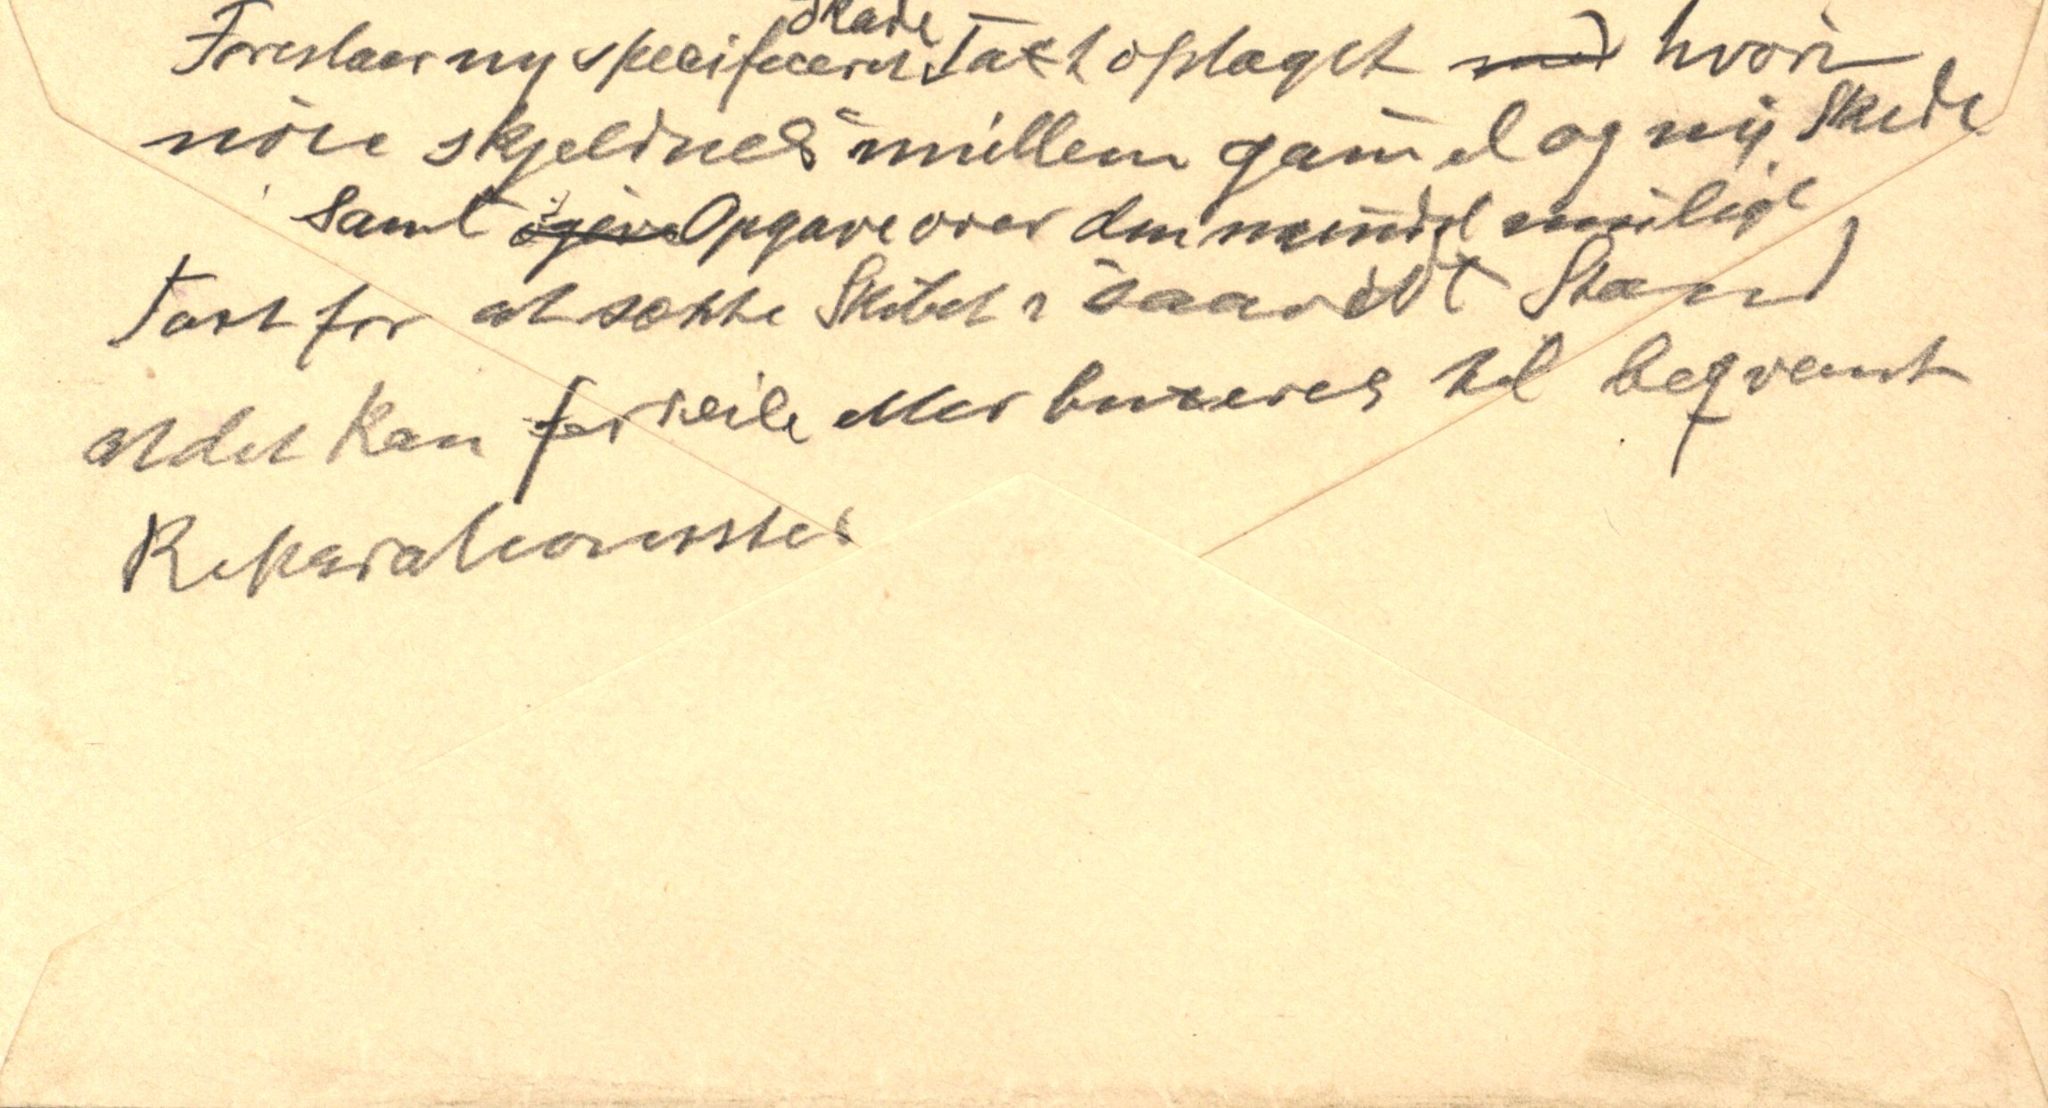 Skade
Foreslaar ny specificeret Taxt optaget hvori
nöie skjeldnes imellem gammel og ny Skade
samt Opgave over den mindst mulig
Taxt for at sætte Skibet i saavidt Stand
at det kan forseile eller buxeres til beqvemt
Reparationssted